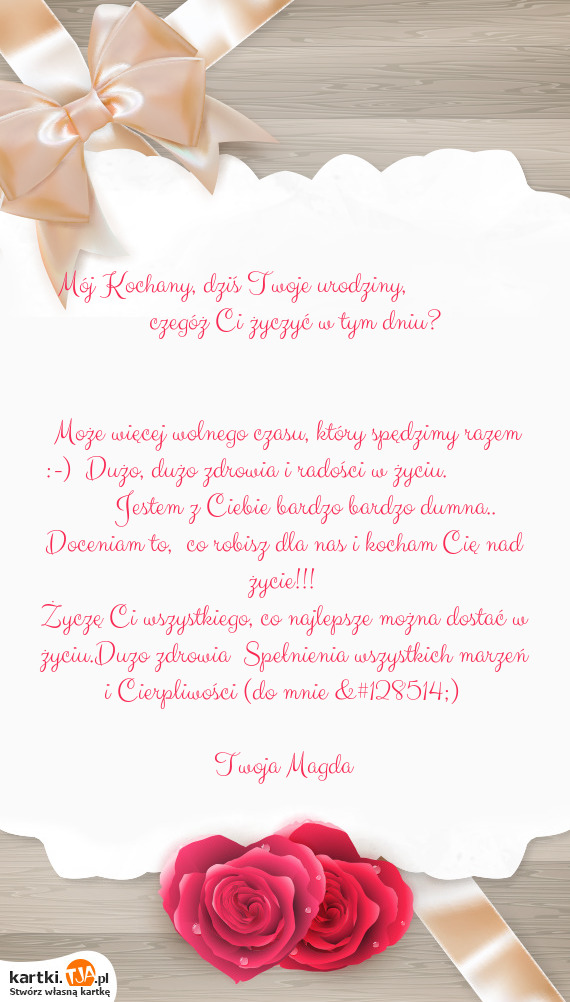 Mój Kochany, dziś Twoje urodziny,
czegóż Ci życzyć w tym dniu?
Może więcej wolnego czasu, który spędzimy razem
:-) Dużo, dużo zdrowia i radości w życiu.
Jestem z Ciebie bardzo bardzo dumna..
Doceniam to, co robisz dla nas i kocham Cię nad
życie!!!
Życzę Ci wszystkiego, co najlepsze można dostać w
życiu.Duzo zdrowia Spełnienia wszystkich marzeń
i Cierpliwości (do mnie &#128514;)
Twoja Magda
kartki.TJA.pl
Stwórz własną kartkę